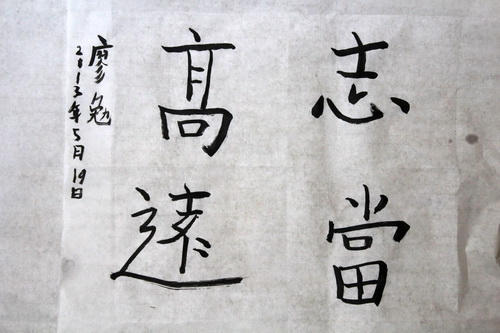 志當
髙遠
廖勉
2013年5月19日